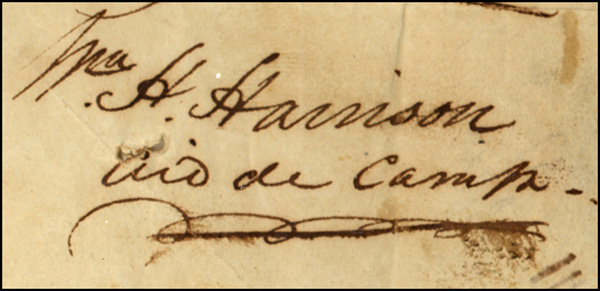 Wm. H. Harrison
aid de Camp.